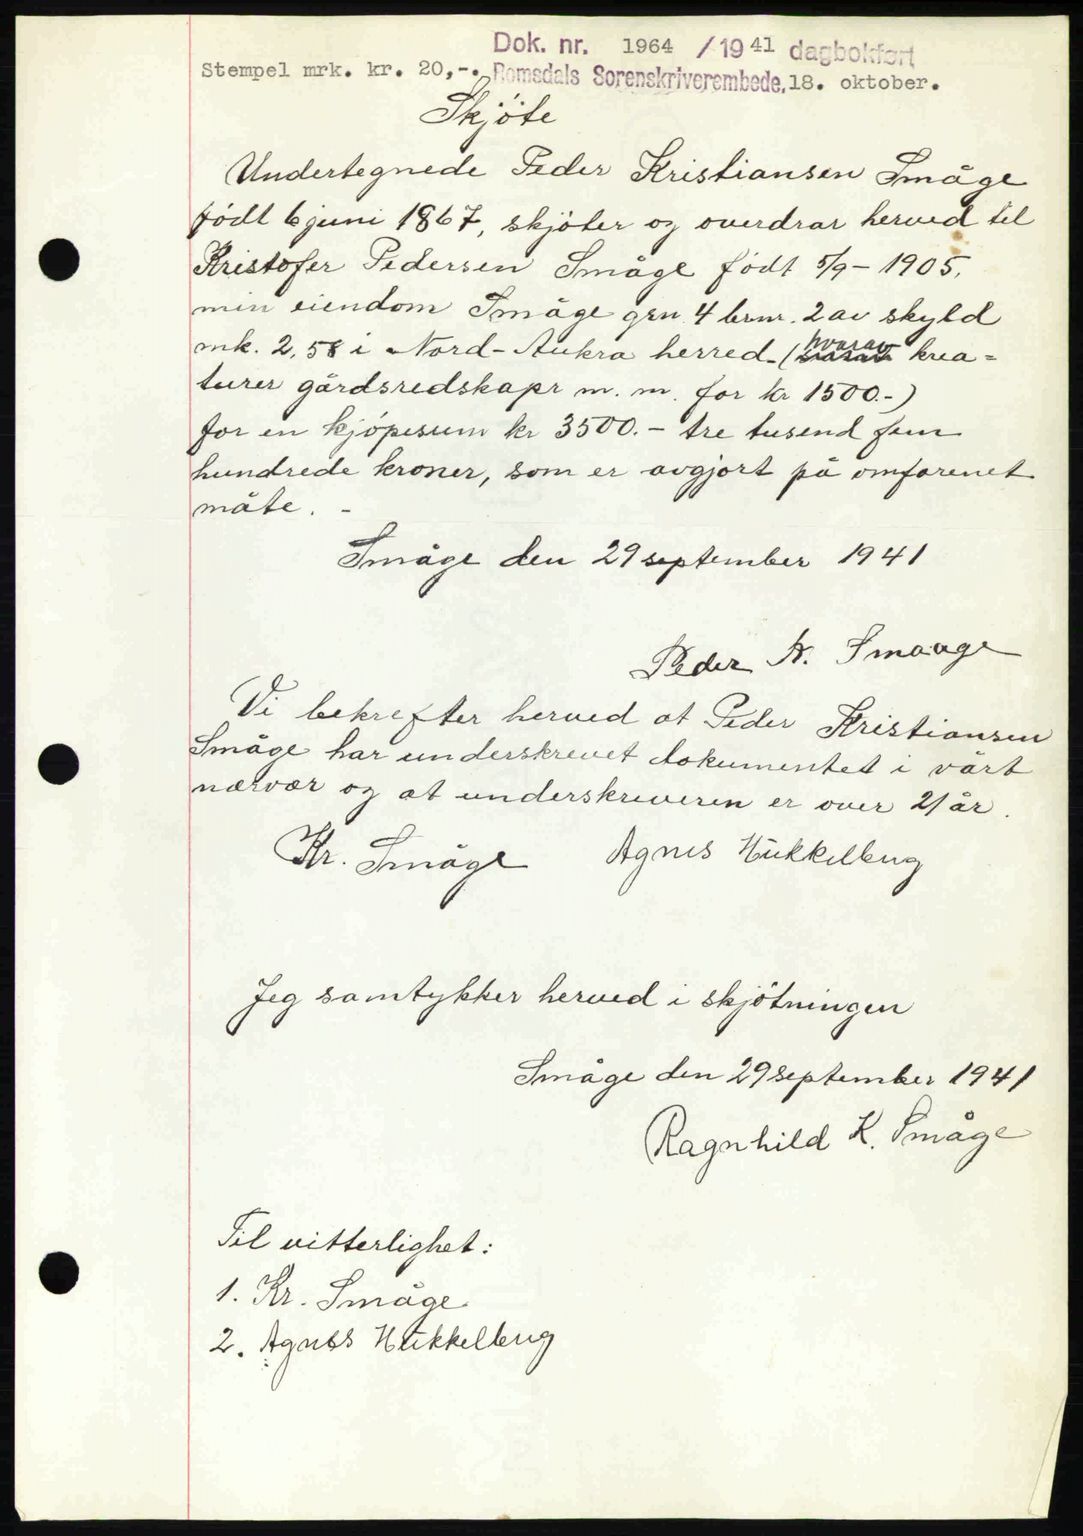 Dok. nr. 1964 / 1941 dagbokført
Stempel mrk. kr. 20,-. Romsdals Sorenskriverembede, 18. oktober.
Skjöte
Undertegnede Peder Kristiansen Småge
födt 6 juni 1867, skjöter og overdrar herved til
Kristofer Pedersen Småge födt 5/9 - 1905,
min eiendom Småge grn 4 brnr. 2 av skyld
mk. 2,58 i Nord-Aukra herred - (hvorav krea=
turer gårdsredskapr m. m. for kr 1500.-)
for en kjöpesum kr 3500.- tre tusend fem
hundrede kroner, som er avgjort på omforenet
måte. -
Småge den 29 september 1941
Peder K. Smaage
Vi bekrefter herved at Peder Kristiansen
Småge har underskrevet dokumentet i vårt
nærvær og at underskriveren er over 21 år.
Kr. Småge Agnes Hukkelberg
Jeg samtykker herved i skjötningen
Småge den 29 september 1941
Ragnhild K. Småge
Til vitterlighet:
1. Kr. Småge
2. Agnes Hukkelberg